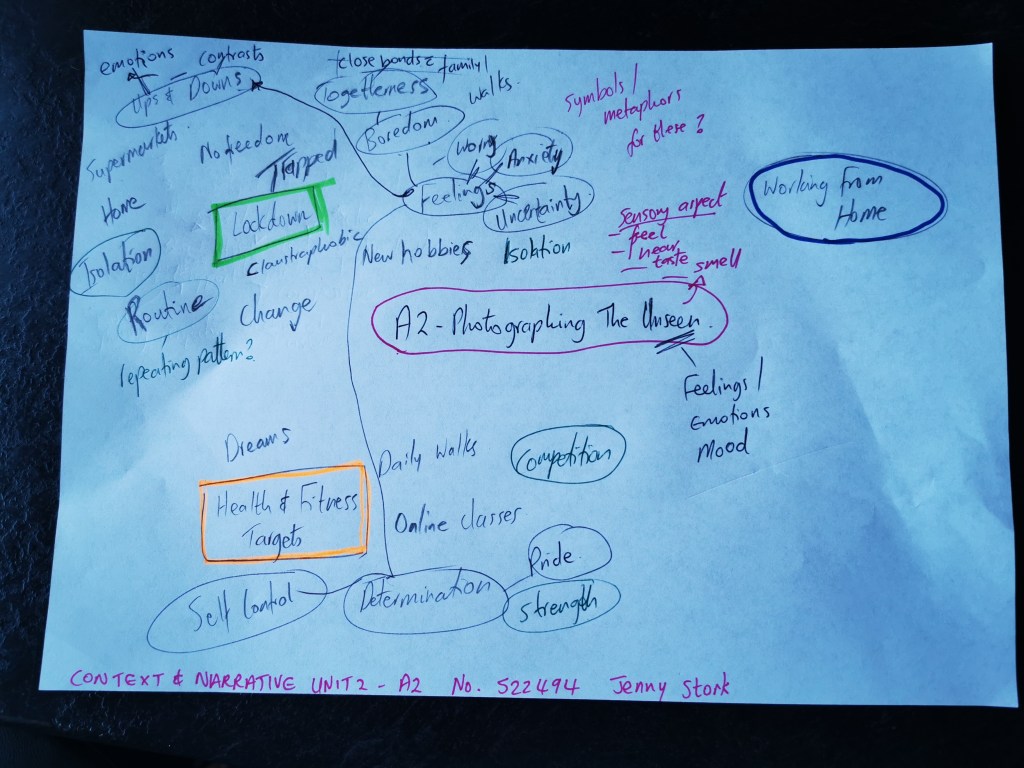 emotions - contrasts
Ups & Downs
Supermarkets
No freedom
Trapped
Home
Lockdown
Claustrophobic
Isolation
Routine
Change
repeating pattern?
close bonds family/
Togetherness
walks.
Boredom
Worry
Anxiety
Feelings
Uncertainty
New hobbies
Isolation
symbols/
metaphors
for these?
sensory aspect
- feel
- hear
- taste
- smell
Working from
Home
A2 - Photographing The Unseen.
Feelings/
Emotions
Mood
Dreams
Health & Fitness
Targets
Daily Walks
Competition
Online classes
Pride
Self Control
Determination
Strength
CONTEXT & NARRATIVE UNIT 2 - A2 No. 522494 Jenny Stork